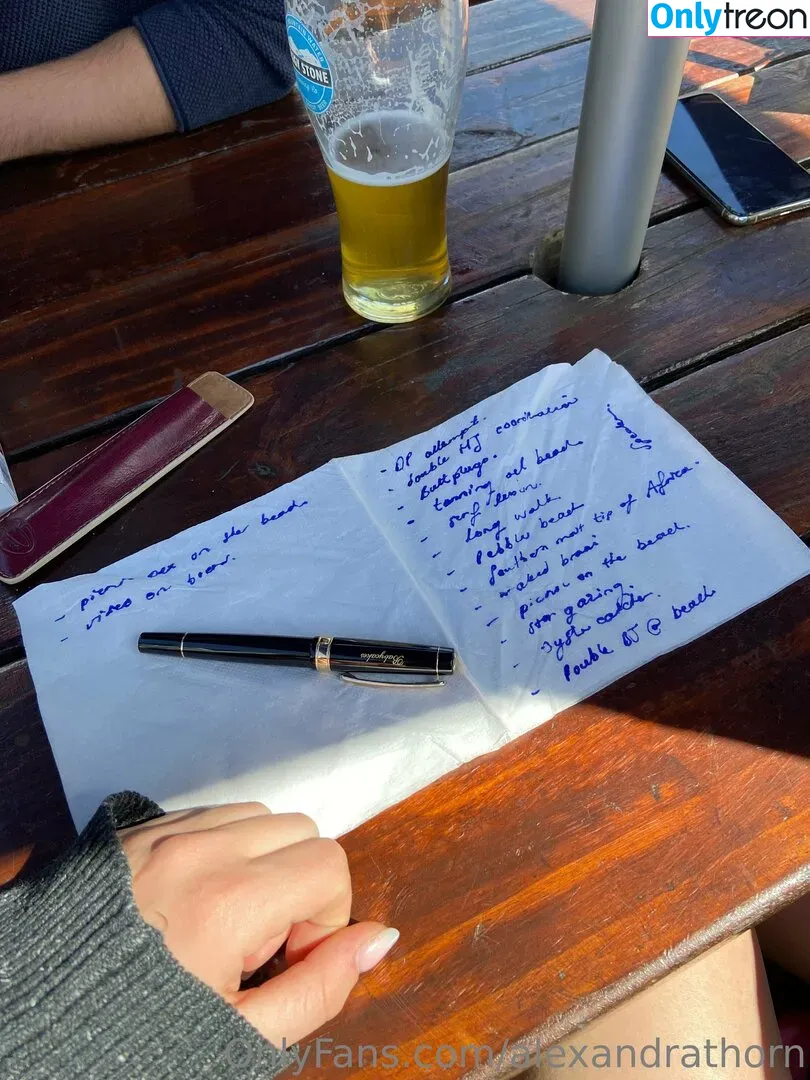 Onlytreon
STONE
- picnic on the beach
- video on boat.
- DP attempt.
- double HJ coordination
- Butt plugs.
- tanning at beach
- surf lesson.
- long walk
- Pebble beach
- Southern most tip of Africa.
- naked braai
- picnic on the beach.
- star gazing.
- catcher.
- Double BJ @ beach
Babycakes
OnlyFans.com/alexandrathorn